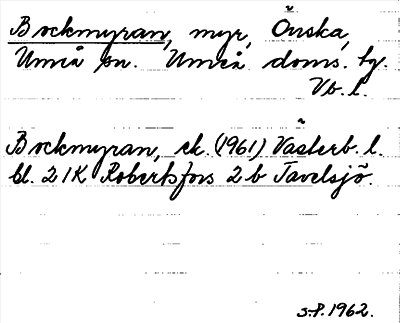 Bockmyran, myr, Önska,
Umeå sn. Umeå doms. hg.
Vb. l.
Bockmyran, ek. (1961) Västerb. l.
bl. 21K Robertsfors 2b Tavelsjö.
S.P. 1962.